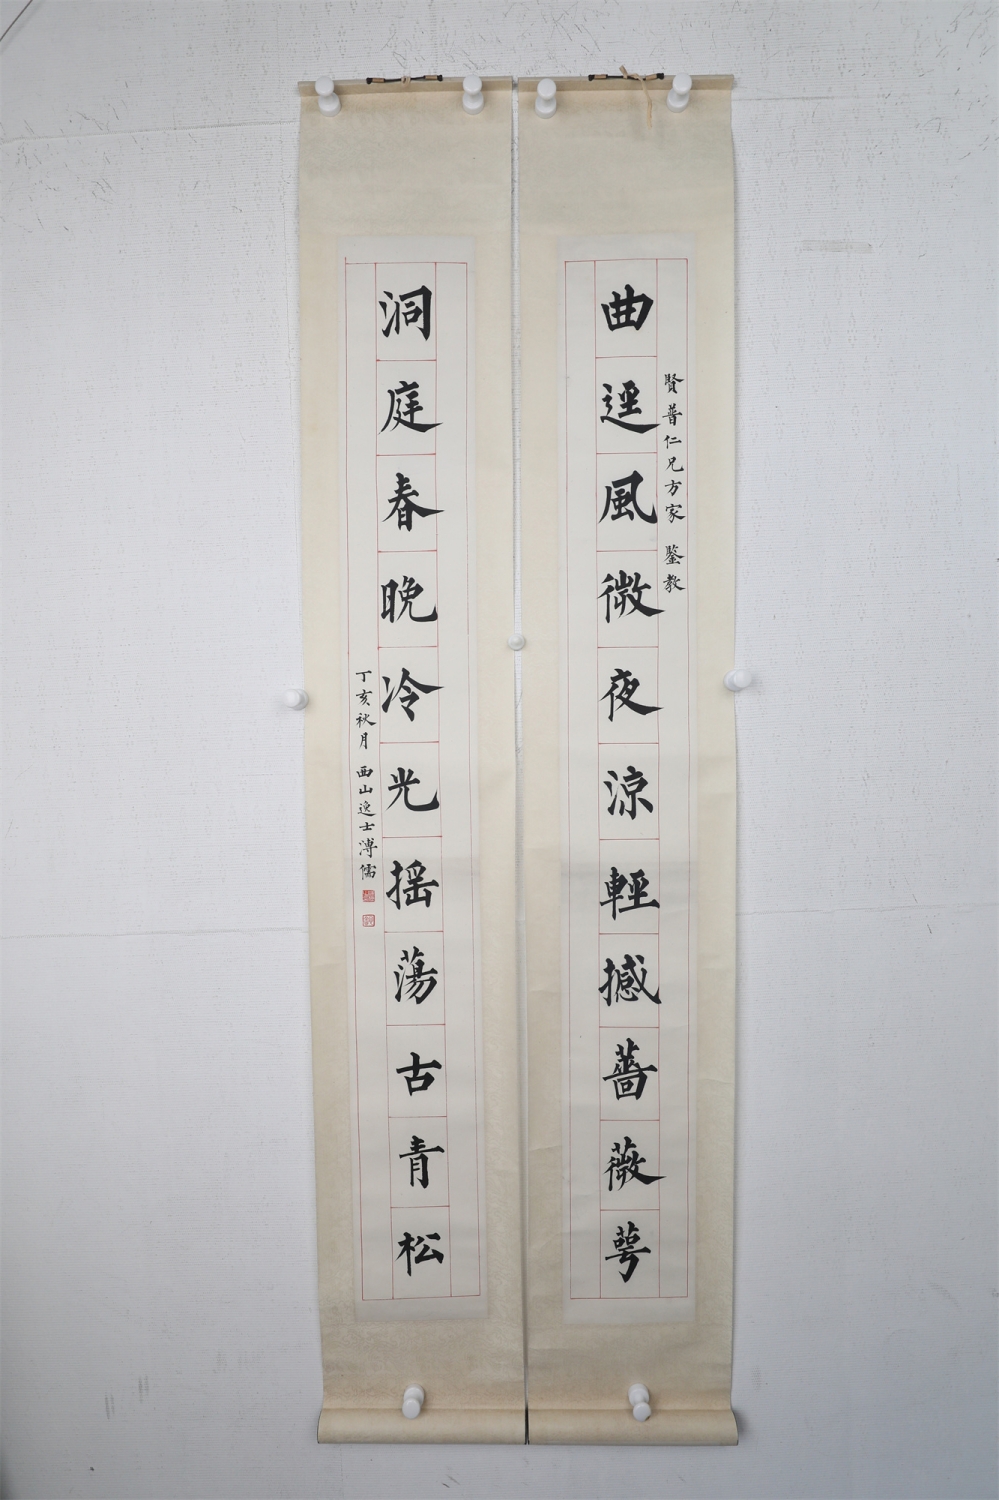 曲逕風微夜涼輕撼薔薇萼
賢普仁兄方家 鑒教
洞庭春晚冷光搖蕩古青松
丁亥秋月 西山逸士溥儒